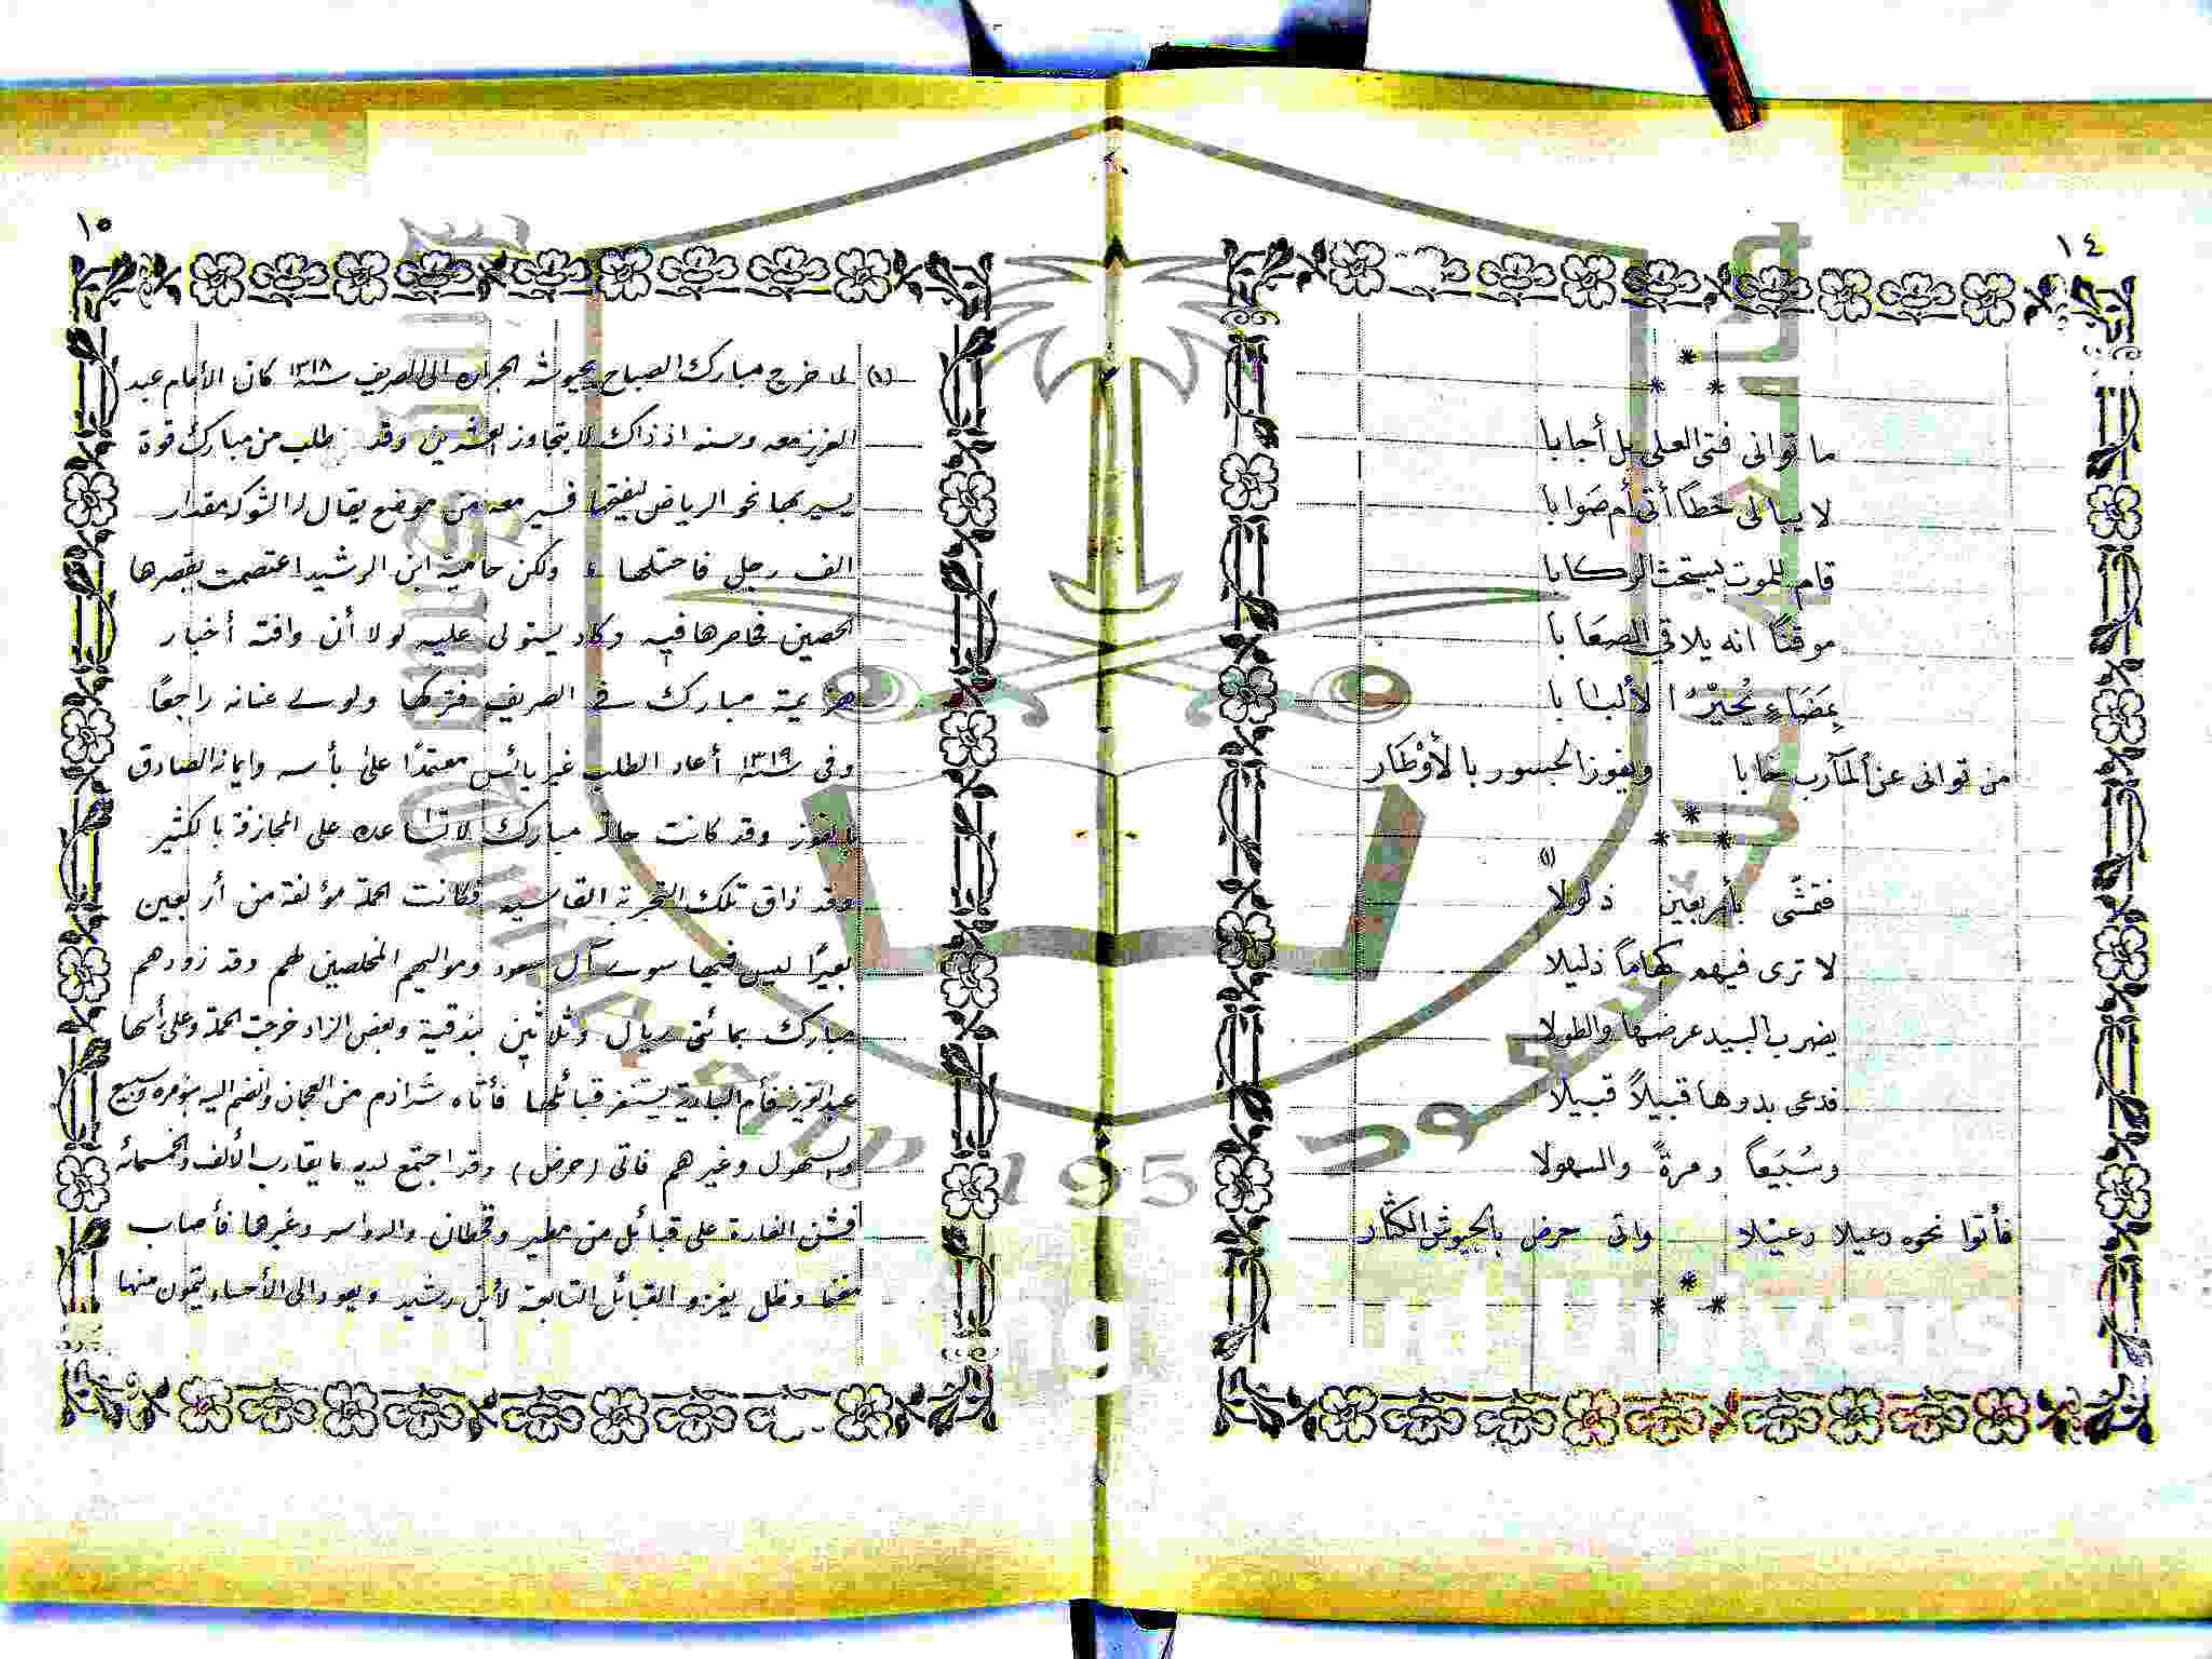 ١٤
*
* *
ما توانى فتى العلى بل أجابا
لا يبالى خطأً أتى أم صَوابا
قام للموت يستحث الركابا
موقناً انه يلاقي الصعَابا
بمَضَاءٍ يُحَيِّرُ الألبابا
من توانى عن المآرب خابا ويفوز الجسور بالأوْطار
*
* *
(١)
فتمشّى بأربعين ذلولا
لا ترى فيهم كهاماً ذليلا
يضرب البيد عرضها والطولا
فدعى بدوها قبيلاً قبيلا
وسُبَيعاً ومرةً والسهولا
فأتوا نحوه رعيلا رعيلا واتى حرض بالجيوش الكثار
*
* *
١٥
(١) لما خرج مبارك الصباح بجيوشه الجراره الى الصريف سنة ١٣١٨ كان الأمام عبد
العزيز معه وسنه اذ ذاك لا يتجاوز العشرين وقد طلب من مبارك قوة
يسير بها نحو الرياض ليفتحها فسير معه من موضع يقال له الشوكه مقدار
الف رجل فاحتلها ولكن حامية ابن الرشيد اعتصمت بقصرها
الحصين فحاصرها فيه وكاد يستولى عليه لولا أن وافته أخبار
هزيمة مبارك في الصريف فتركها ولوى عنانه راجعاً
وفى سنة ١٣١٩ أعاد الطلب غير يائس معتمداً على بأسه وايمانه الصادق
بالفوز وقد كانت حالة مبارك لا تساعده على المجازفة بالكثير
وقد ذاق تلك التجربة القاسيه فكانت الحملة مؤلفة من أربعين
بعيراً ليس فيها سوى آل سعود ومواليهم المخلصين لهم وقد زودهم
مبارك بمائتى ريال وثلاثين بندقية وبعض الزاد خرجت الحملة وعلى رأسها
عبد العزيز فأم البادية يستنفر قبائلها فأتاه شراذم من العجمان وانضم اليه بنو مره وسبيع
والسهول وغيرهم فاتى (حرض) وقد اجتمع لديه ما يقارب الألف والخمسمائة
فشن الغارة على قبائل من مطير وقحطان والدواسر وغيرها فأصاب
مغنما وظل يغزو القبائل التابعة لأبن رشيد ويعود الى الأحساء يتمون منها